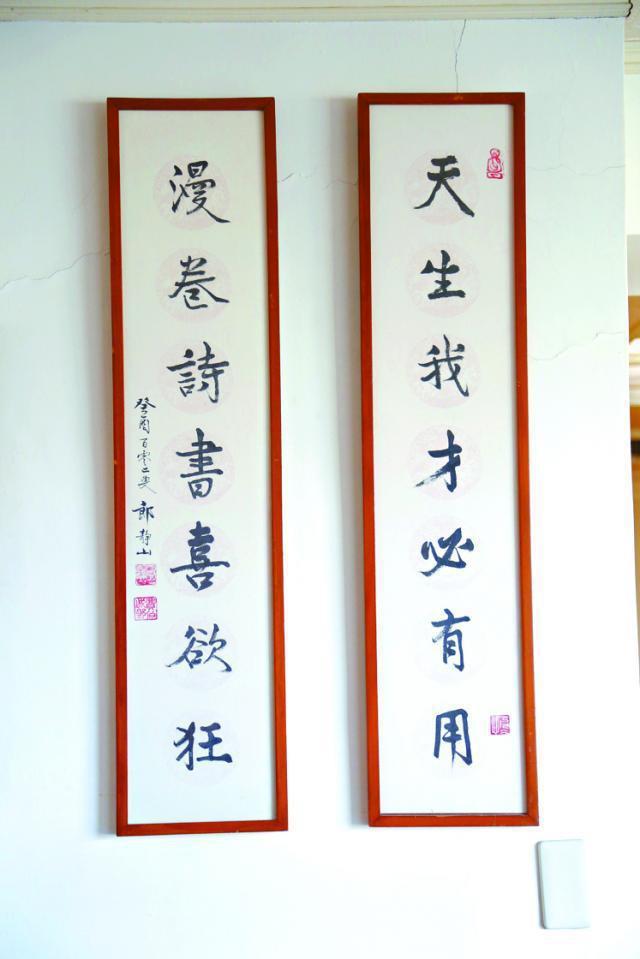 天生我才必有用
漫卷詩書喜欲狂
癸酉百零二叟 郎靜山